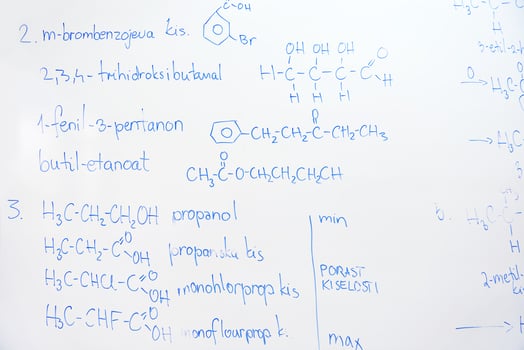 C-OH
2. m-brombenzojeva kis.
Br
2,3,4-trihidroksibutanal
OH OH OH O
H-C-C-C-C
H H H H
1-fenil-3-pentanon
O
-CH₂-CH₂-C-CH₂-CH₃
butil-etanoat
O
CH₃-C-O-CH₂CH₂CH₂CH
3. H₃C-CH₂-CH₂OH propanol
H₃C-CH₂-C O OH propansku kis
H₃C-CHCl-C O OH monohlorprop kis
H₃C-CHF-C O OH monoflourprop k.
min
PORAST
KISELOSTI
max
H₃C
b.
2-metil